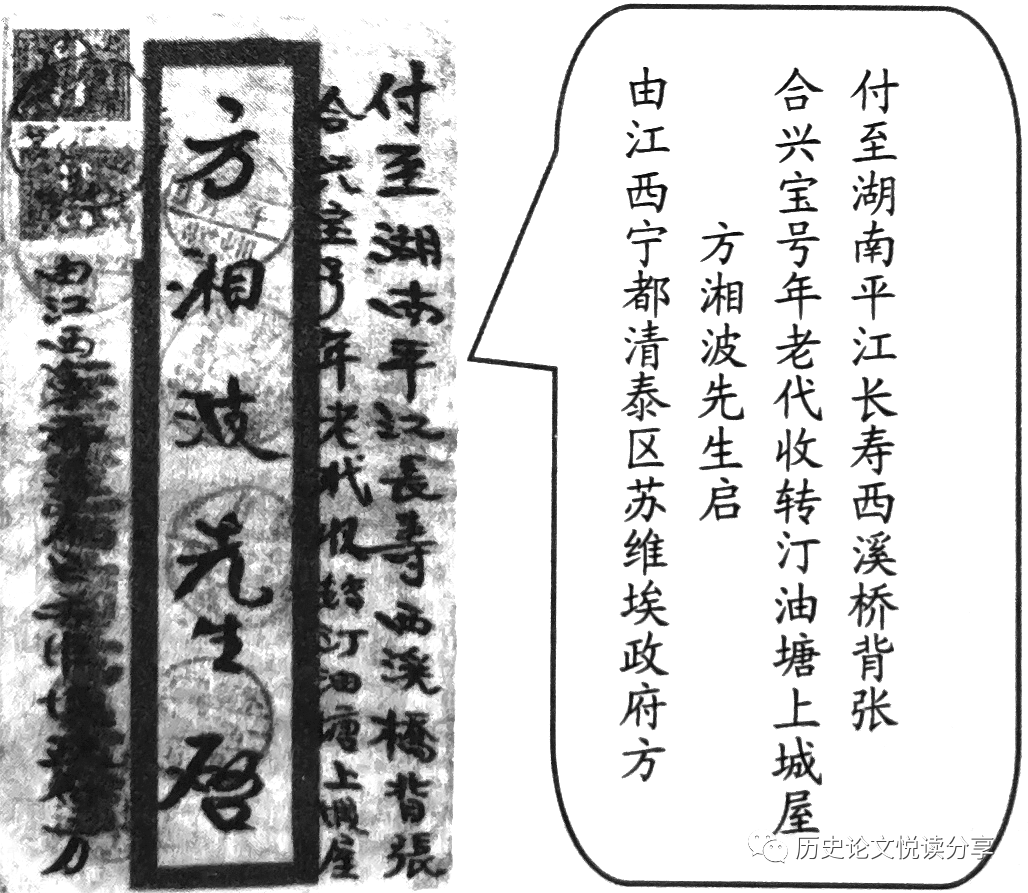 付至湖南平江長寿西溪橋背張
合兴宝号年老代收转汀油塘上城屋
方湘波先生启
由江西宁
方
付至湖南平江长寿西溪桥背张
合兴宝号年老代收转汀油塘上城屋
方湘波先生启
由江西宁都清泰区苏维埃政府方
历史论文悦读分享